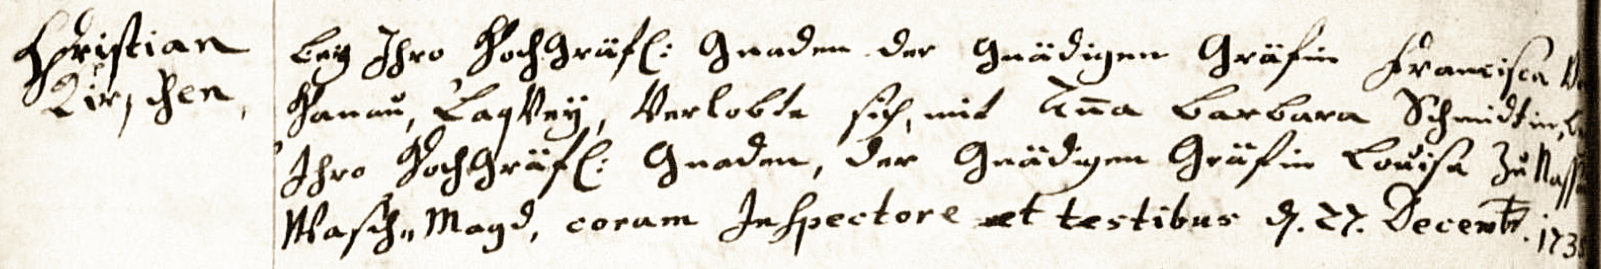 Christian
Kirschen,
beÿ Ihro HochGräfl: Gnaden der Gnädigen Gräfin Francisca
Hanau, Laqveÿ, Verlobte sich, mit Anna Barbara Schmidtin,
Ihro HochGräfl: Gnaden, der Gnädigen Gräfin Louisa Zu Nass
Wasch„Magd, coram Inspectore et testibus d. 27. Decembr. 173